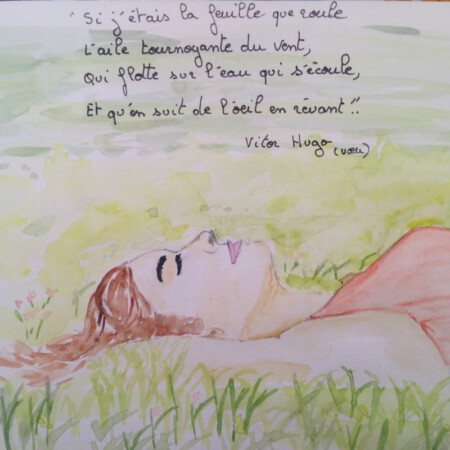 "Si j'étais la feuille que roule
L'aile tournoyante du vent,
Qui flotte sur l'eau qui s'écoule,
Et qu'on suit de l'oeil en rêvant"..
Vitor Hugo (vœu)